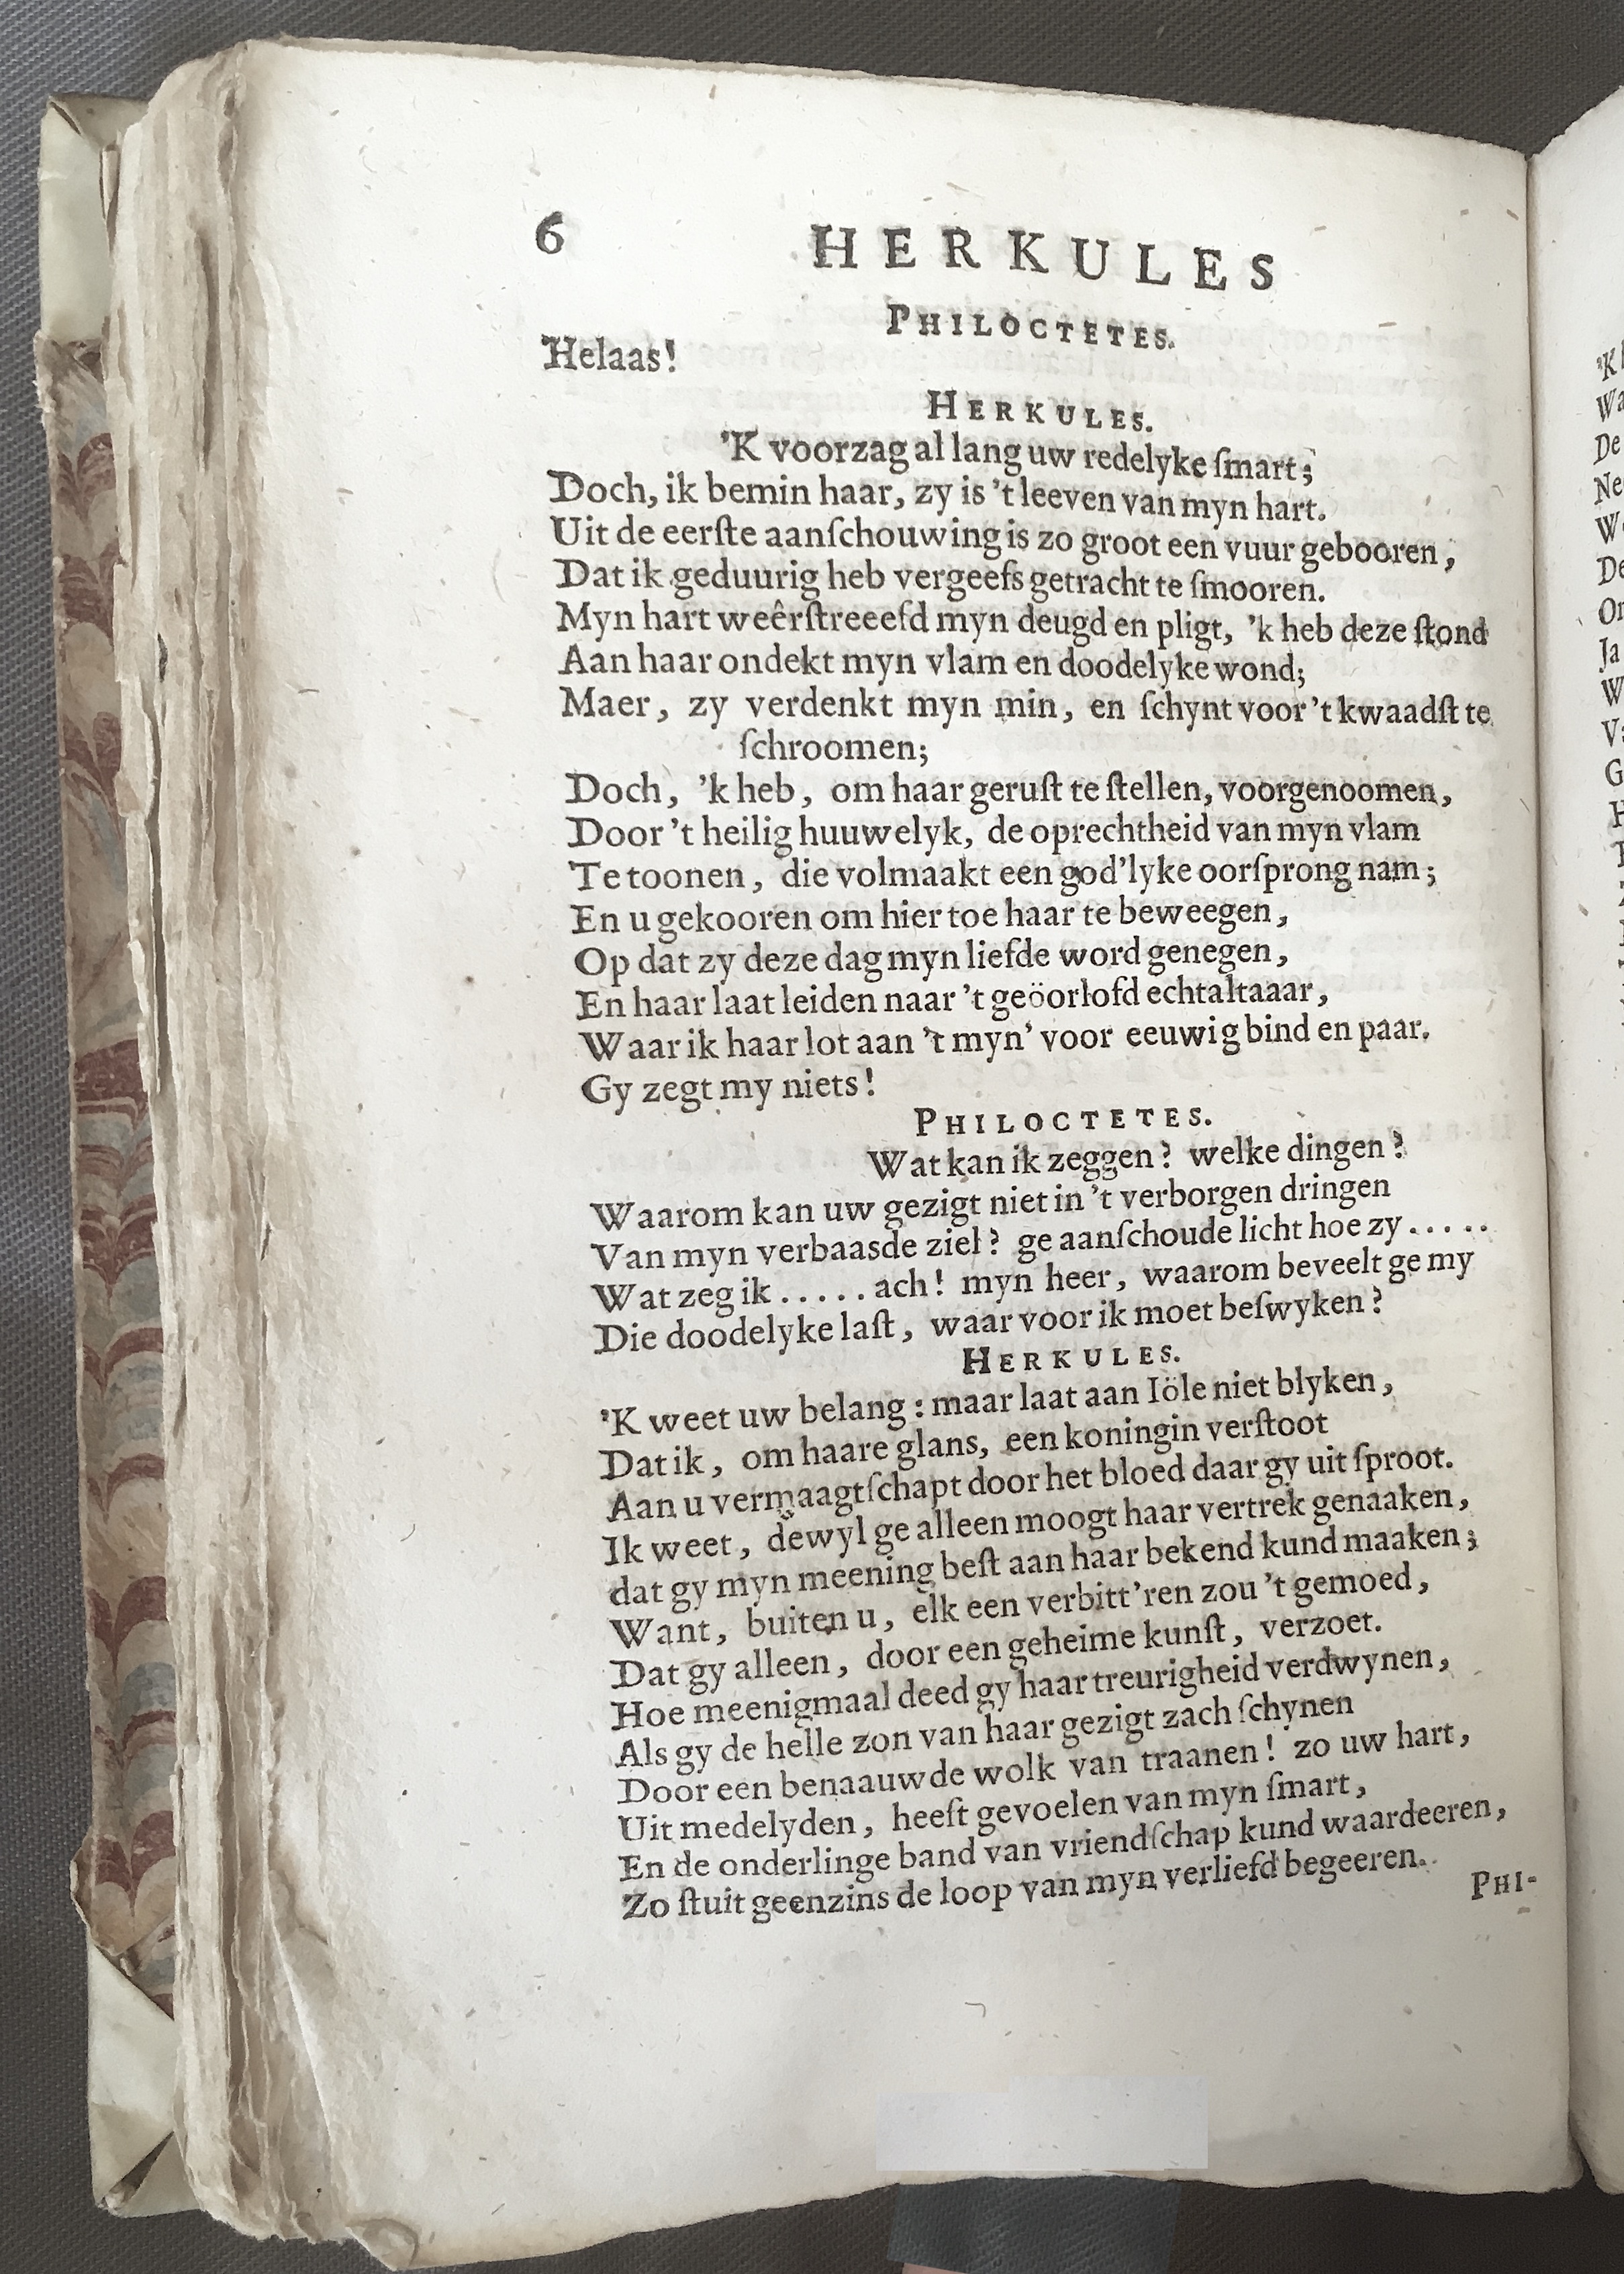 6 HERKULES
PHILOCTETES.
Helaas!
HERKULES.
'K voorzag al lang uw redelyke ſmart;
Doch, ik bemin haar, zy is 't leeven van myn hart.
Uit de eerſte aanſchouwing is zo groot een vuur gebooren,
Dat ik geduurig heb vergeefs getracht te ſmooren.
Myn hart weêrſtreeefd myn deugd en pligt, 'k heb deze ſtond
Aan haar ondekt myn vlam en doodelyke wond;
Maer, zy verdenkt myn min, en ſchynt voor 't kwaadſt te
ſchroomen;
Doch, 'k heb, om haar geruſt te ſtellen, voorgenoomen,
Door 't heilig huuwelyk, de oprechtheid van myn vlam
Te toonen, die volmaakt een god'lyke oorſprong nam;
En u gekooren om hier toe haar te beweegen,
Op dat zy deze dag myn liefde word genegen,
En haar laat leiden naar 't geöorlofd echtaltaaar,
Waar ik haar lot aan 't myn' voor eeuwig bind en paar.
Gy zegt my niets!
PHILOCTETES.
Wat kan ik zeggen? welke dingen?
Waarom kan uw gezigt niet in 't verborgen dringen
Van myn verbaasde ziel? ge aanſchoude licht hoe zy.....
Wat zeg ik.....ach! myn heer, waarom beveelt ge my
Die doodelyke laſt, waar voor ik moet beſwyken?
HERKULES.
'K weet uw belang: maar laat aan Iöle niet blyken,
Dat ik, om haare glans, een koningin verſtoot
Aan u vermaagtſchapt door het bloed daar gy uit ſproot.
Ik weet, dewyl ge alleen moogt haar vertrek genaaken,
dat gy myn meening beſt aan haar bekend kund maaken;
Want, buiten u, elk een verbitt'ren zou 't gemoed,
Dat gy alleen, door een geheime kunſt, verzoet.
Hoe meenigmaal deed gy haar treurigheid verdwynen,
Als gy de helle zon van haar gezigt zach ſchynen
Door een benaauwde wolk van traanen! zo uw hart,
Uit medelyden, heeft gevoelen van myn ſmart,
En de onderlinge band van vriendſchap kund waardeeren,
Zo ſtuit geenzins de loop van myn verliefd begeeren.
PHI-
'K
Wa
De
Ne
De
Ja